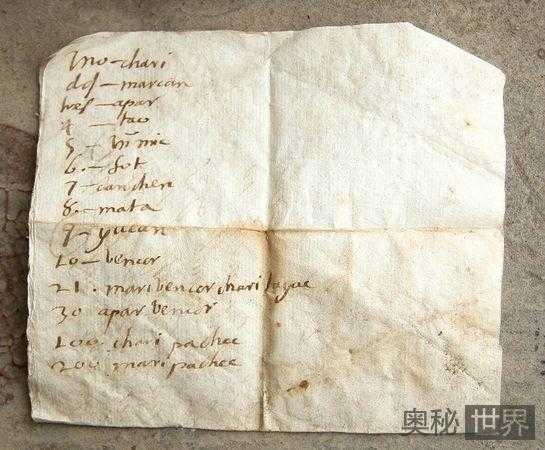 Uno - chari
dos - marian
tres - apar
4 - tau
5 -
6. - sut
7 - canchen
8. - mata
9 - yucan
10 - bencor
21. maribencor chari tayac
30 apar bencor
100 chari pachac
200 mari pachac
奥秘世界